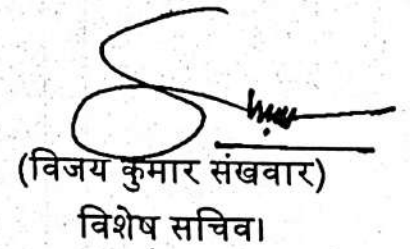 (विजय कुमार संखवार)
विशेष सचिव।